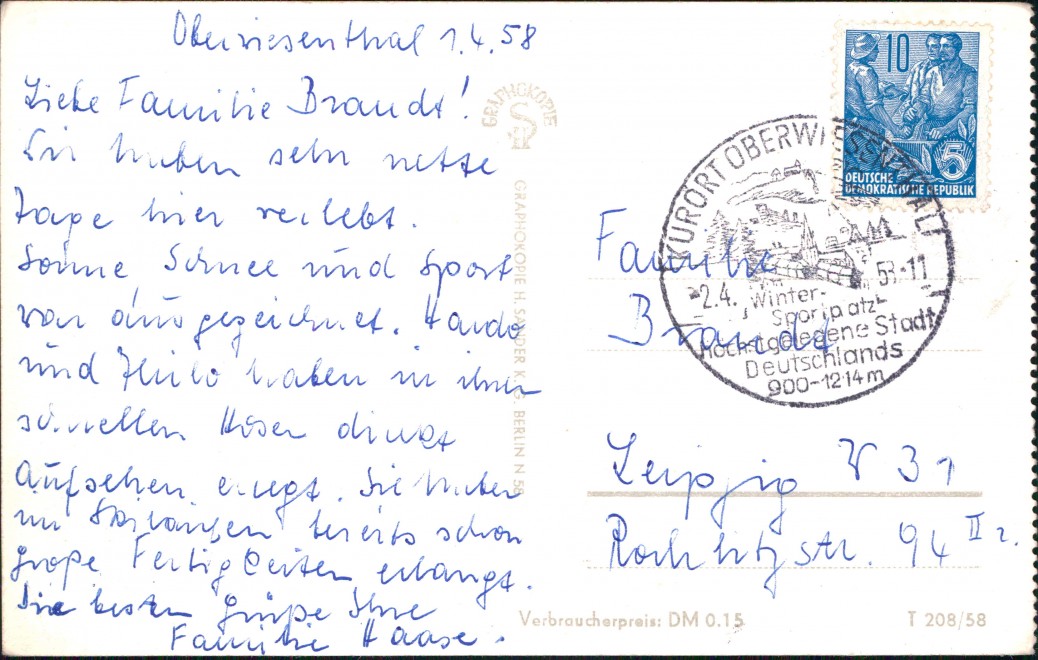 Oberwiesenthal 1.4.58
Liebe Familie Brandt!
Wir haben sehr nette
Tage hier verlebt.
Sonne Schnee und Sport
war ausgezeichnet. Hardo
und Thilo haben in ihren
schnellen Hosen direkt
Aufsehen erregt. Sie haben
im Skilaufen bereits schon
große Fertigkeiten erlangt.
Die besten Grüße Ihre
Familie Haase.
GRAPHOKOPIE
GRAPHOKOPIE H. SANDER K.G. BERLIN N 58
10
5
DEUTSCHE
DEMOKRATISCHE REPUBLIK
KURORT OBERWIESENTHAL
-2.4. 58-11
Winter-
Sportplatz
Höchstgelegene Stadt
Deutschlands
900-1214m
Familie
Brandt
Leipzig W 31
Rochlitzstr. 94 II r.
Verbraucherpreis: DM 0.15
T 208/58